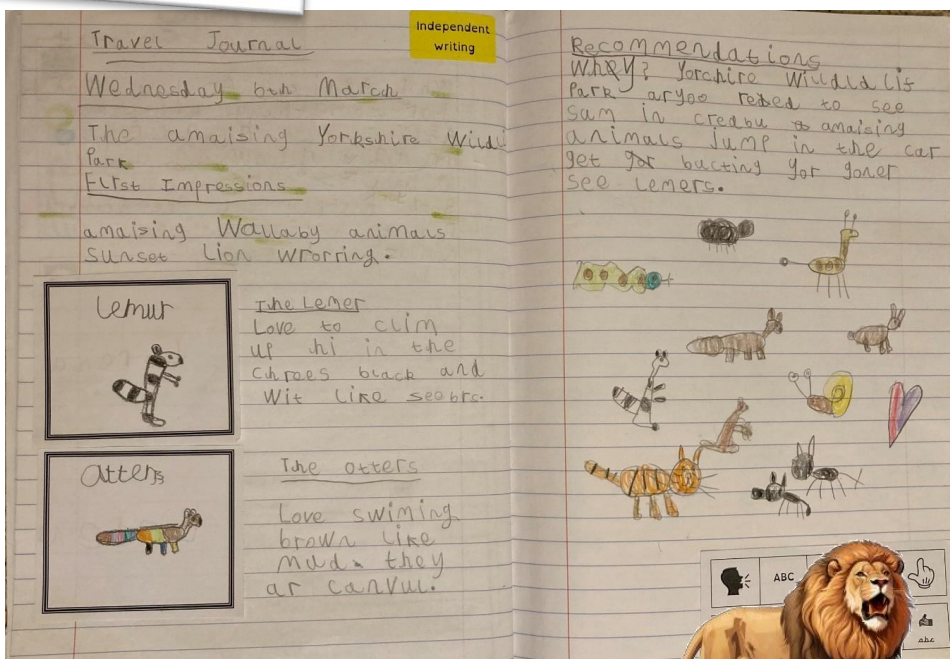 Travel Journal
Independent
writing
Wednesday 6th March
The amaising Yorkshire Wildli
Park
First Impressions
amaising Wallaby animals
sunset Lion wrorring.
Lemur
The Lemer
Love to clim
up hi in the
chrees black and
wit like seebrs.
otters
The otters
Love swiming
brown like
mud. they
ar canvul.
Recommendations
Whey? Yorchire Willdld lif
Park aryoo reded to see
sam in credbu amaising
animals jump in the car
get bucting yor goner
see Lemers.
ABC
abc